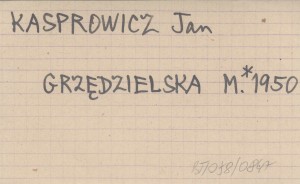 KASPROWICZ Jan
GRZĘDZIELSKA M.*1950